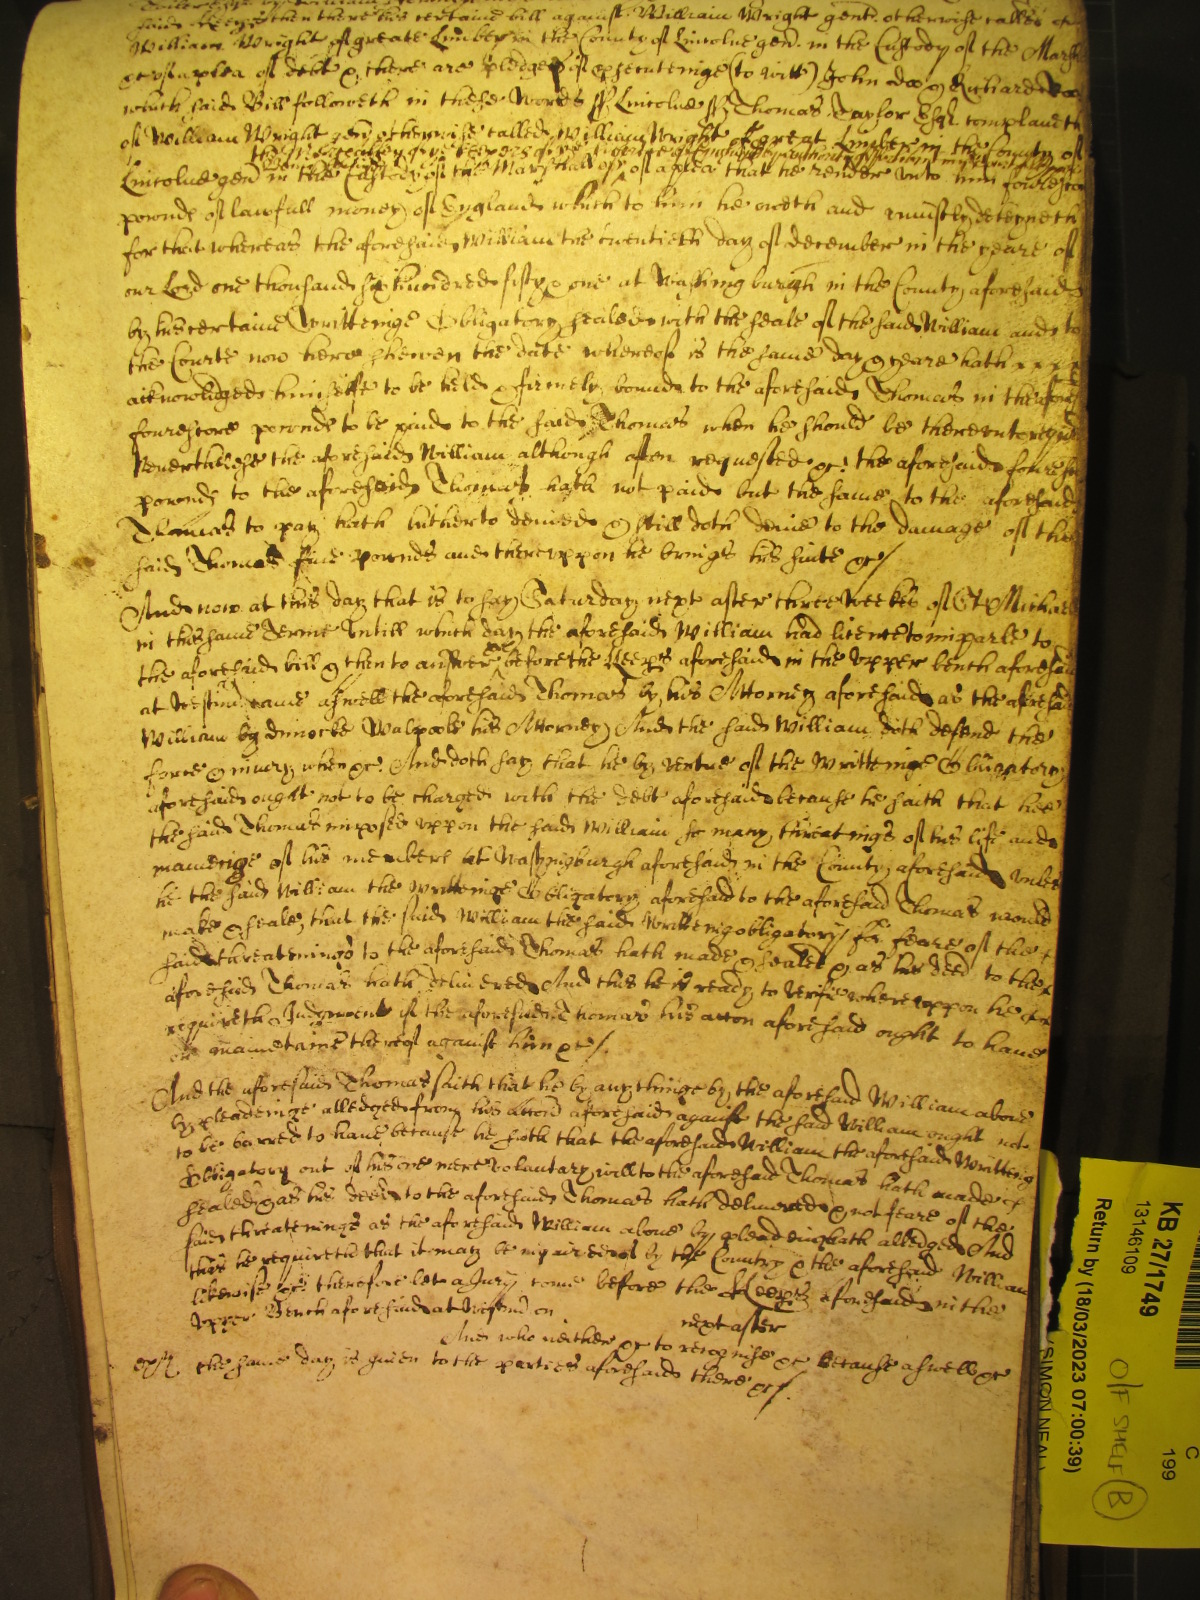 said then there his certaine bill against William Wright gent. otherwise called
William Wright of greate Limber in the County of Lincolne gen. in the Custody of the Marsh
&c of a plea of debt & there are pledges of prosecuteinge (to witt) John doe & Richard Roe
which said Bill followeth in these words ss Lincolne ss Thomas Taylor Esq. complaineth
of William Wright gen otherwise called William Wright of great Limber in the County of
Lincolne gen in the Custody of the Marshall &c of a plea that he render unto him fourescore
pownds of lawfull money of England which to him he oweth and uniustly deteyneth
for that whereas the aforesaid William the twentieth day of december in the yeare of
our Lord one thousand six hundred fifty & one at Washingburgh in the County aforesaid
by his certaine Writteinge Obligatory sealed with the seale of the said William and to
the Courte now here shewen the date whereof is the same day & yeare hath
acknowledged himselfe to be held & firmely bound to the aforesaid Thomas in the afores
fourescore pownds to be paid to the said Thomas when he should be thereunto requ
Neverthelese the aforesaid William although often requested &c the aforesaid foures
pownds to the aforesaid Thomas hath not paid but the same to the aforesaid
Thomas to pay hath hitherto denied & still doth denie to the damage of the
said Thomas five pownds and thereuppon he brings his suite &c/
And now at this day that is to say Saturday next after three weekes of St Michael
in this same Terme Untill which day the aforesaid William had licence to imparle to
the aforesaid bill & then to answer &c before the Keeps aforesaid in the Upper bench aforesaid
at Westm came aswell the aforesaid Thomas by his Attorney aforesaid as the aforesaid
William by dimocke Walpoole his Attorney And the said William doth defend the
force & iniury when &c. And doth say that he by vertue of the Writteinge Obligatory
aforesaid ought not to be charged with the debt aforesaid because he saith that hee
the said Thomas imposed uppon the said William so many threatnings of his life and
maimeige of his members at Washingburgh aforesaid in the County aforesaid unles
he the said William the writteinge Obligatory aforesaid to the aforesaid Thomas would
make & seale, that the said William the said Writteing obligatory for feare of the
said threatenings to the aforesaid Thomas hath made & sealed & as his deed to the
aforesaid Thomas hath delivered And this he is ready to verifie whereuppon he
requireth Judgment if the aforesaid Thomas his accon aforesaid ought to have
or maineteine thereof against him &c/.
And the aforesaid Thomas saith that he by any thinge by the aforesaid William above
by pleadeinge alledged from his accon aforesaid against the said William ought not
to be barred to have because he saith that the aforesaid William the aforesaid Writteing
Obligatory out of his owne mere voluntary will to the aforesaid Thomas hath made &
sealed & as his deed to the aforesaid Thomas hath delivered & not feare of the
said threatenings as the aforesaid William above by pleadeing hath alledged And
this he requireth that it may be inquired of by the Country & the aforesaid William
likewise &c therefore let a Jury come before the Keeps aforesaid in the
Upper Bench aforesaid at Westm on next after
And who neither &c to recognise &c because aswell &c
the same day is given to the parties aforesaid there &c/.
KB 27/1749
13146109
Return by (18/03/2023 07:00:39)
SIMON NEAL
C
199
O/F SHELF B